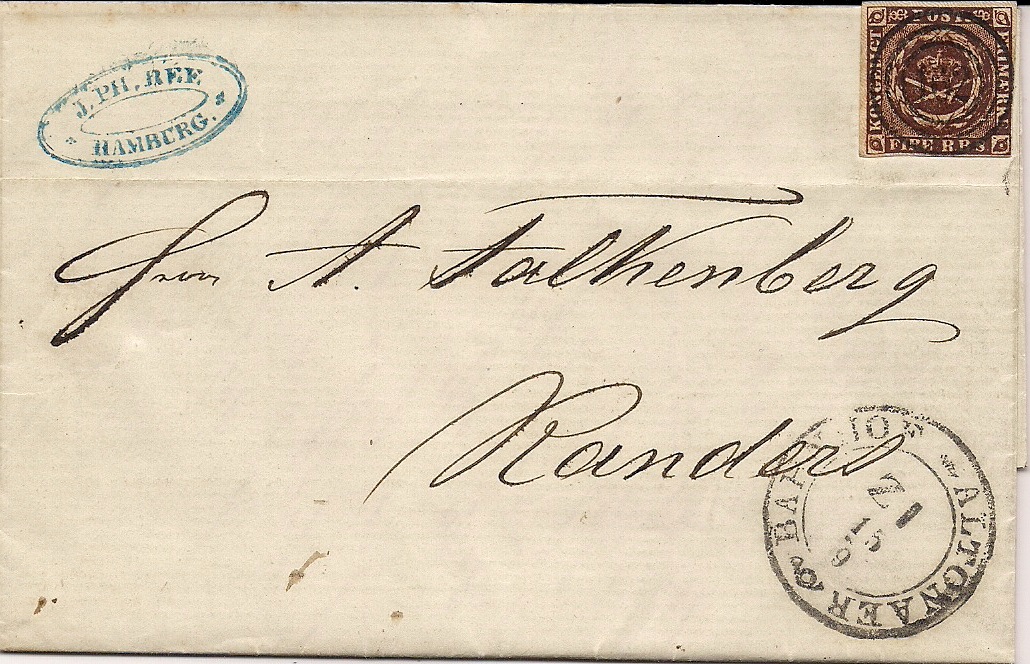 J. PH. RÉE
* HAMBURG. *
KONGELIGT
POST
FRIMÆRKE
FIRE R.B.S.
Herrn A. Falkenberg
Randers
ALTONAER BAHNHOF